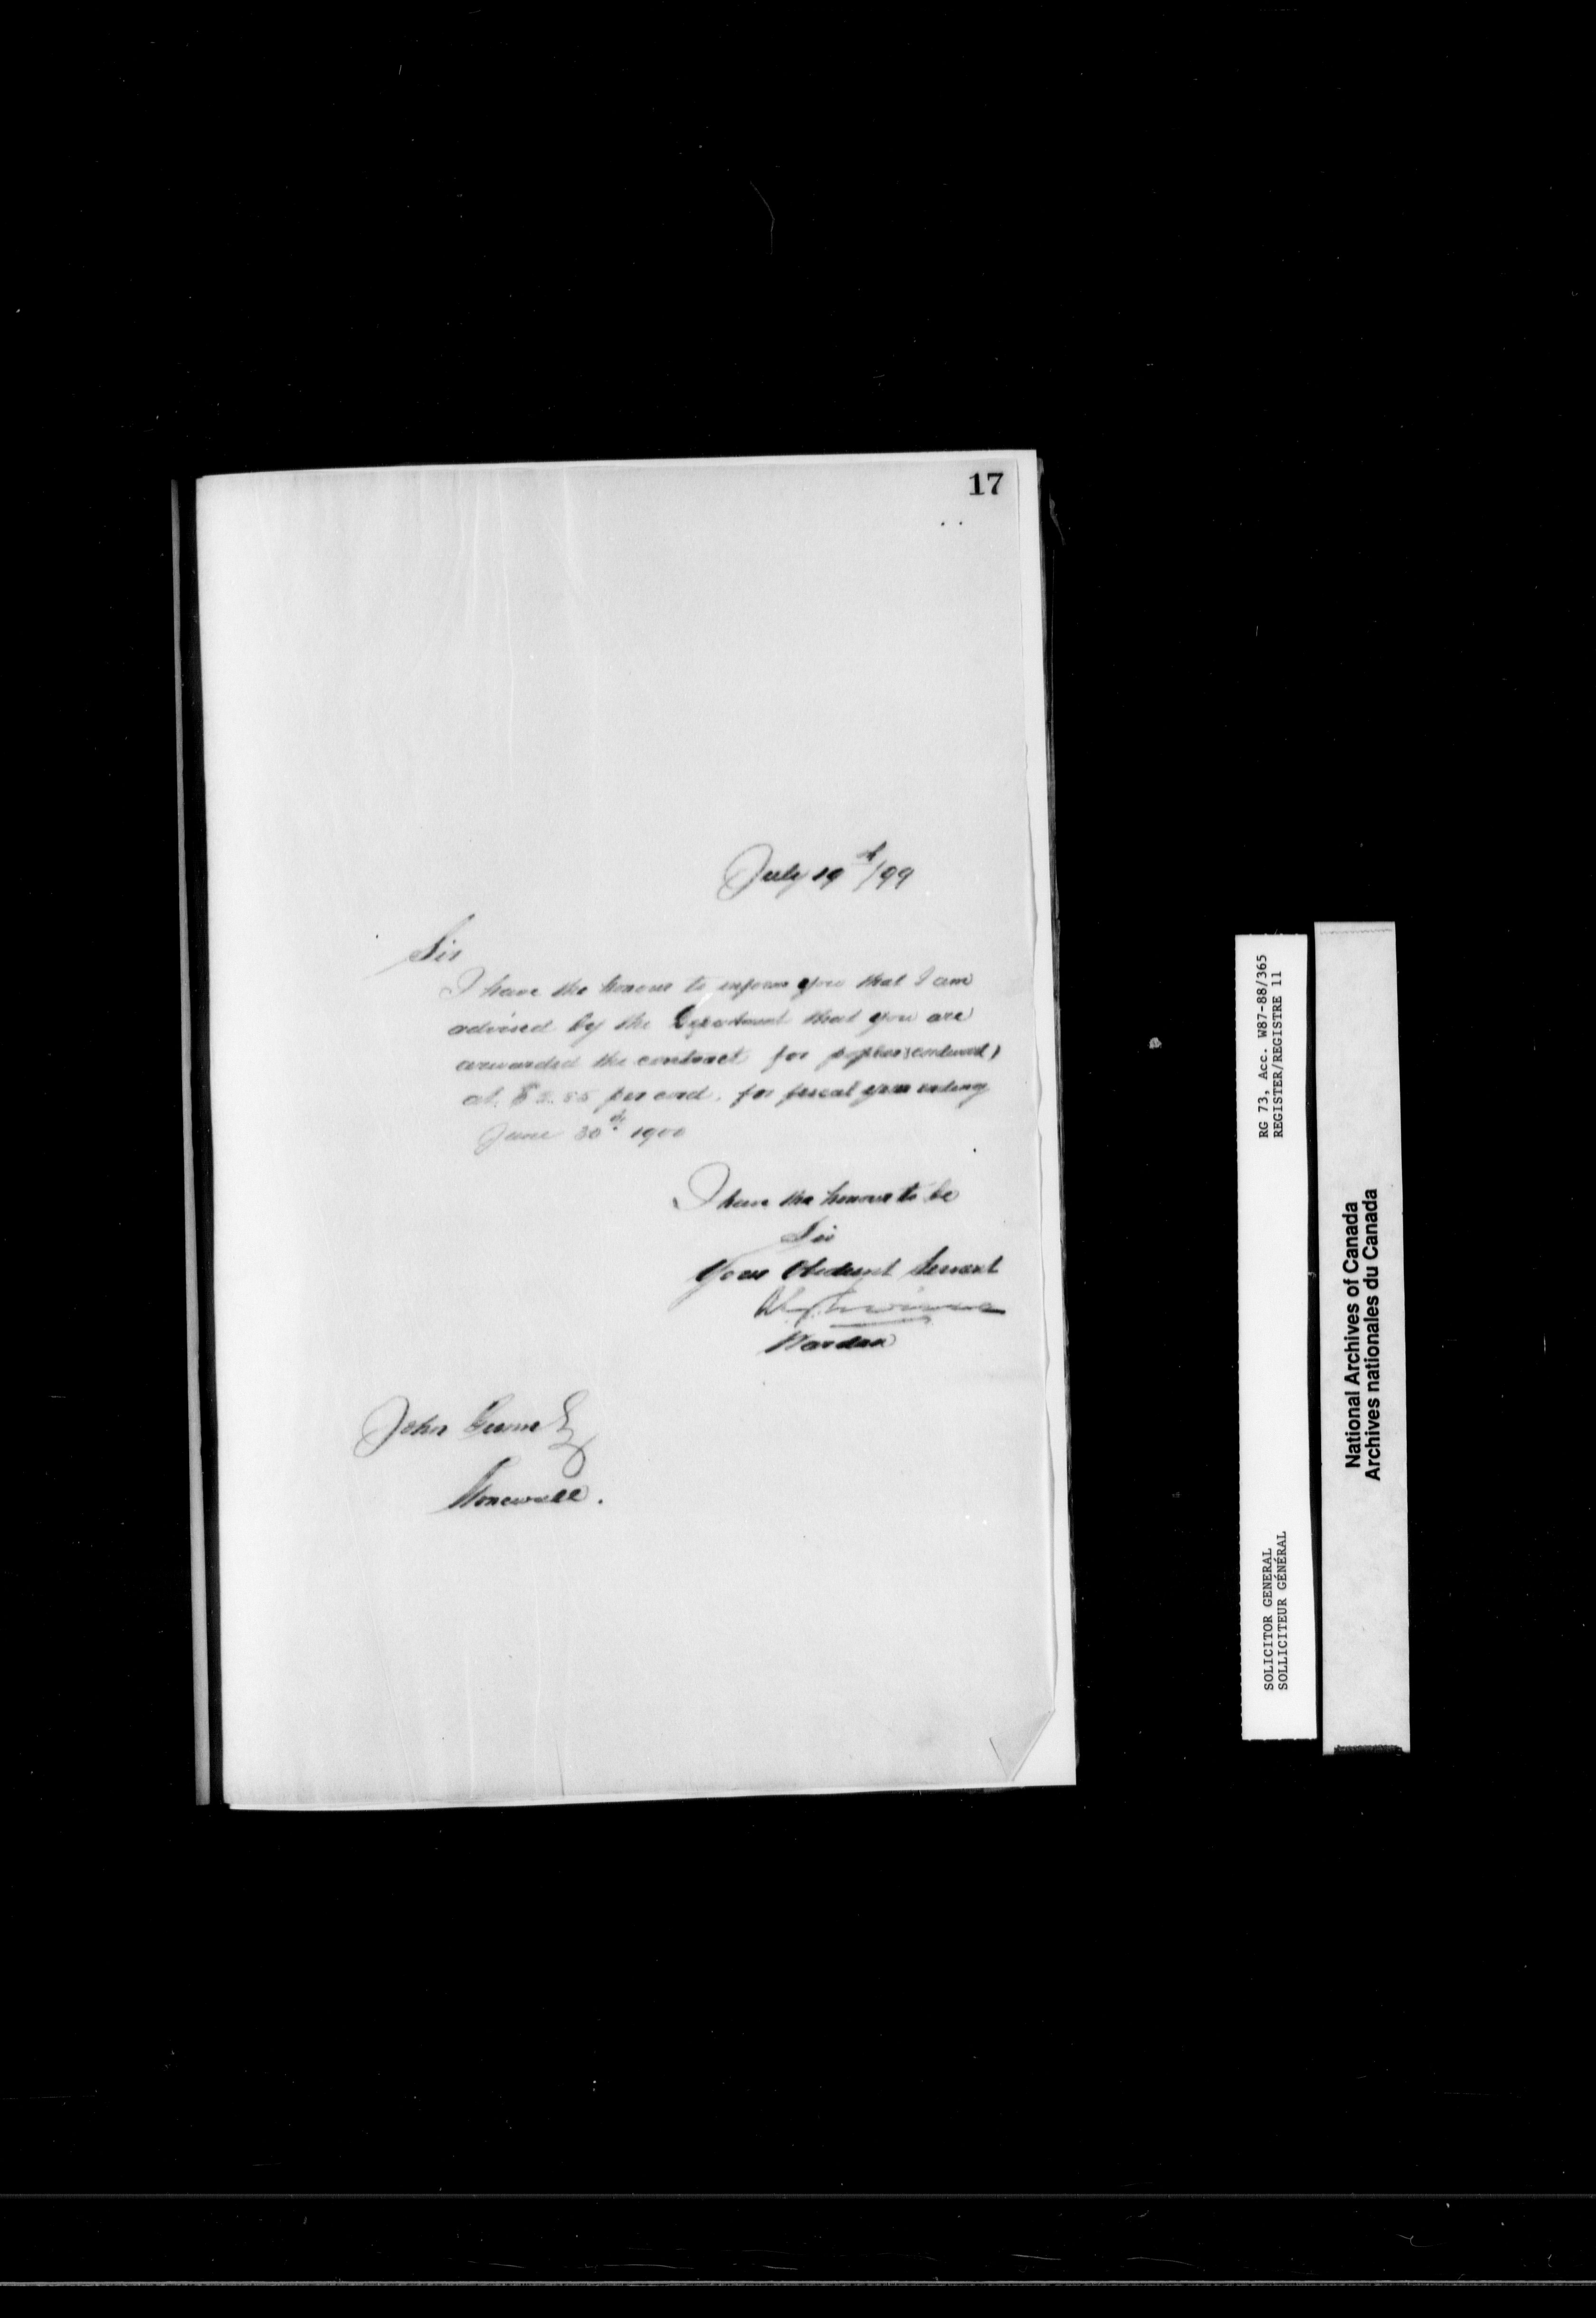 17
July 19th/99
Sir
I have the honour to inform you that I am
advised by the Department that you are
awarded the contract for poplar (cordwood)
at $ per cord, for fiscal year ending
June 30th 1900
I have the honour to be
Sir
Your Obedient Servant
Irvine
Warden
John Esq
Stonewall.
RG 73, Acc. W87-88/365
REGISTER/REGISTRE 11
SOLICITOR GENERAL
SOLLICITEUR GÉNÉRAL
National Archives of Canada
Archives nationales du Canada